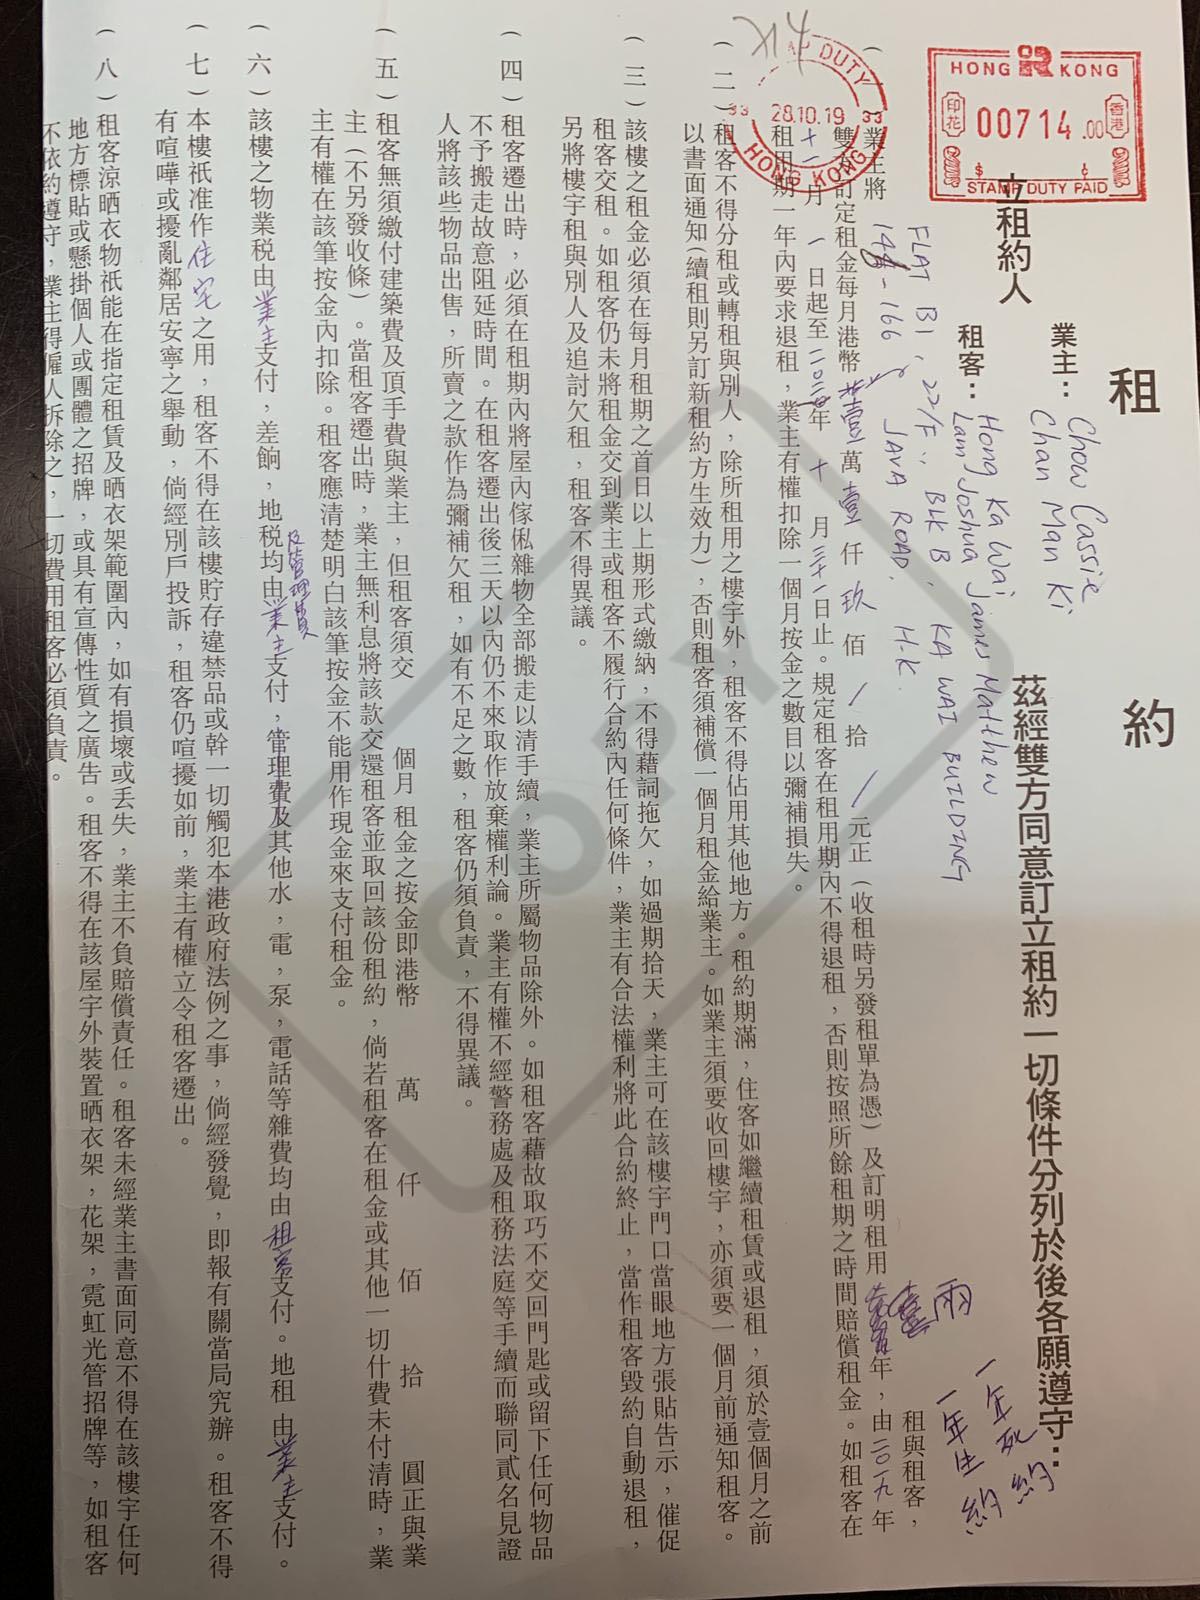 租約
HONG KONG
印花
00714.00
香港
$ $
STAMP DUTY PAID
STAMP DUTY
33 28.10.19 33
HONG KONG
立租約人
業主：Chow Cassie
Chan Man Ki
租客：Hong Ka Wai
Lam Joshua James Matthew
茲經雙方同意訂立租約一切條件分列於後各願遵守：
一年死約
一年生約
（一）業主將 FLAT B1, 22/F., BLK B, KA WAI BUILDING
-166 JAVA ROAD, H.K. 租與租客，
雙方訂定租金每月港幣 壹 萬 壹 仟 玖 佰 / 拾 / 元正（收租時另發租單為憑）及訂明租用 兩 年，由二〇一九年
十一月一日起至二〇二 年十月三十一日止。規定租客在租用期內不得退租，否則按照所餘租期之時間賠償租金。如租客在
租用期一年內要求退租，業主有權扣除一個月按金之數目以彌補損失。
（二）租客不得分租或轉租與別人，除所租用之樓宇外，租客不得佔用其他地方。租約期滿，住客如繼續租賃或退租，須於壹個月之前
以書面通知（續租則另訂新租約方生效力），否則租客須補償一個月租金給業主。如業主須要收回樓宇，亦須要一個月前通知租客。
（三）該樓之租金必須在每月租期之首日以上期形式繳納，不得藉詞拖欠，如過期拾天，業主可在該樓宇門口當眼地方張貼告示，催促
租客交租。如租客仍未將租金交到業主或租客不履行合約內任何條件，業主有合法權利將此合約終止，當作租客毀約自動退租，
另將樓宇租與別人及追討欠租，租客不得異議。
（四）租客遷出時，必須在租期內將屋內傢俬雜物全部搬走以清手續，業主所屬物品除外。如租客藉故取巧不交回門匙或留下任何物品
不予搬走故意阻延時間。在租客遷出後三天以內仍不來取作放棄權利論。業主有權不經警務處及租務法庭等手續而聯同貳名見證
人將該些物品出售，所賣之款作為彌補欠租，如有不足之數，租客仍須負責，不得異議。
（五）租客無須繳付建築費及頂手費與業主，但租客須交 個月租金之按金即港幣 萬 仟 佰 拾 圓正與業
主（不另發收條）。當租客遷出時，業主無利息將該款交還租客並取回該份租約，倘若租客在租金或其他一切什費未付清時，業
主有權在該筆按金內扣除。租客應清楚明白該筆按金不能用作現金來支付租金。
（六）該樓之物業稅由業主支付，差餉，地稅均由業主支付，管理費及其他水，電，泵，電話等雜費均由租客支付。地租由業主支付。
及管理費
（七）本樓祇准作住宅之用，租客不得在該樓貯存違禁品或幹一切觸犯本港政府法例之事，倘經發覺，即報有關當局究辦。租客不得
有喧嘩或擾亂鄰居安寧之舉動，倘經別戶投訴，租客仍喧擾如前，業主有權立令租客遷出。
（八）租客涼晒衣物祇能在指定租賃及晒衣架範圍內，如有損壞或丟失，業主不負賠償責任。租客未經業主書面同意不得在該樓宇任何
地方標貼或懸掛個人或團體之招牌，或具有宣傳性質之廣告。租客不得在該屋宇外裝置晒衣架，花架，霓虹光管招牌等，如租客
不依約遵守，業主得僱人拆除之，一切費用租客必須負責。
COPY